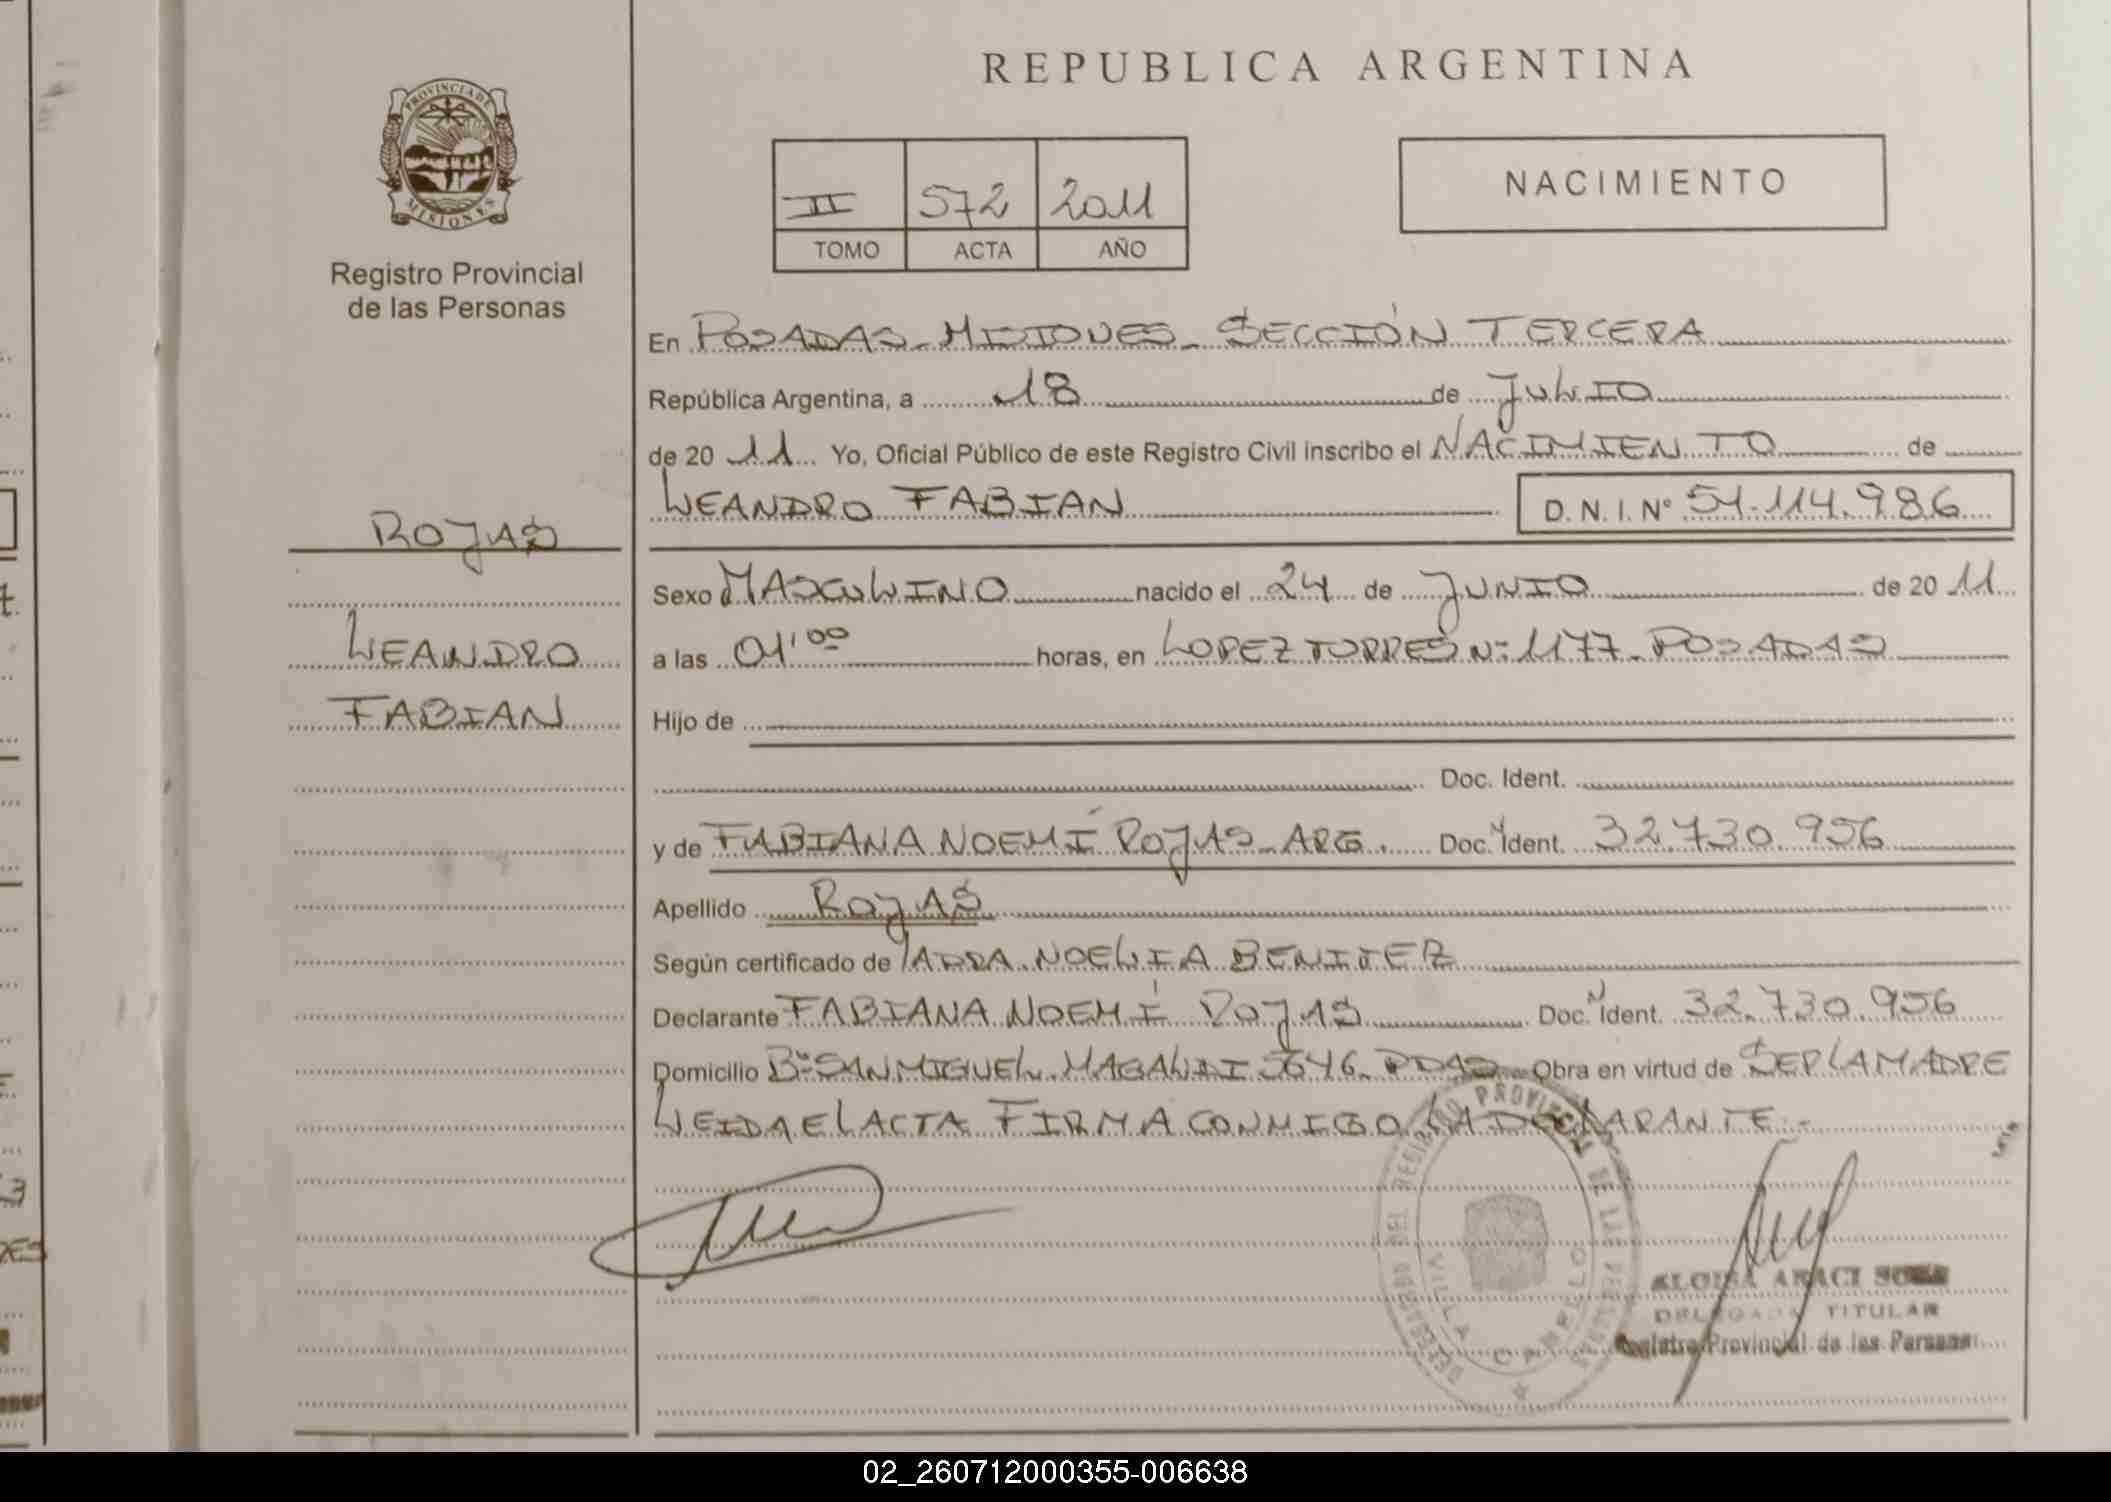 REPUBLICA ARGENTINA
PROVINCIA DE
MISIONES
Registro Provincial
de las Personas
II 572 2011
TOMO ACTA AÑO
NACIMIENTO
En POSADAS - MISIONES - SECCIÓN TERCERA
República Argentina, a 18 de JULIO
de 20 11 Yo, Oficial Público de este Registro Civil inscribo el NACIMIENTO de
LEANDRO FABIAN D. N. I. Nº 51.114.986
ROJAS
LEANDRO
FABIAN
Sexo MASCULINO nacido el 24 de JUNIO de 20 11
a las 01'00 horas, en LOPEZ TORRES Nº 1177 - POSADAS
Hijo de
Doc. Ident.
y de FABIANA NOEMÍ ROJAS - ARG. Doc. N Ident. 32.730.956
Apellido ROJAS
Según certificado de NOELIA BENITEZ
Declarante FABIANA NOEMÍ ROJAS Doc. N Ident. 32.730.956
Domicilio Bº SAN MIGUEL MAGALDI 5646 - PDAS Obra en virtud de SER LA MADRE
LEIDA EL ACTA FIRMA CONMIGO LA DECLARANTE.-
DELEGACION DEL REGISTRO PROVINCIAL DE LAS PERSONAS
VILLA CABELLO
DELEGADA TITULAR
Registro Provincial de las Personas
02_260712000355-006638